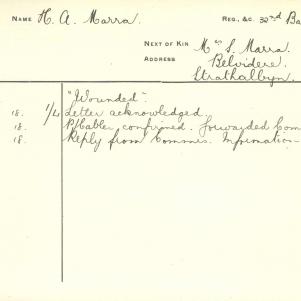 NAME H. A. Marra. REG., &C. 32nd Ba
NEXT OF KIN Mrs S. Marra.
ADDRESS Belvidere.
Strathalbyn.
"Wounded".
18. 1/4 Letter acknowledged.
18. P/Cable confirmed. forwarded Com
18. Reply from Commis. Information-